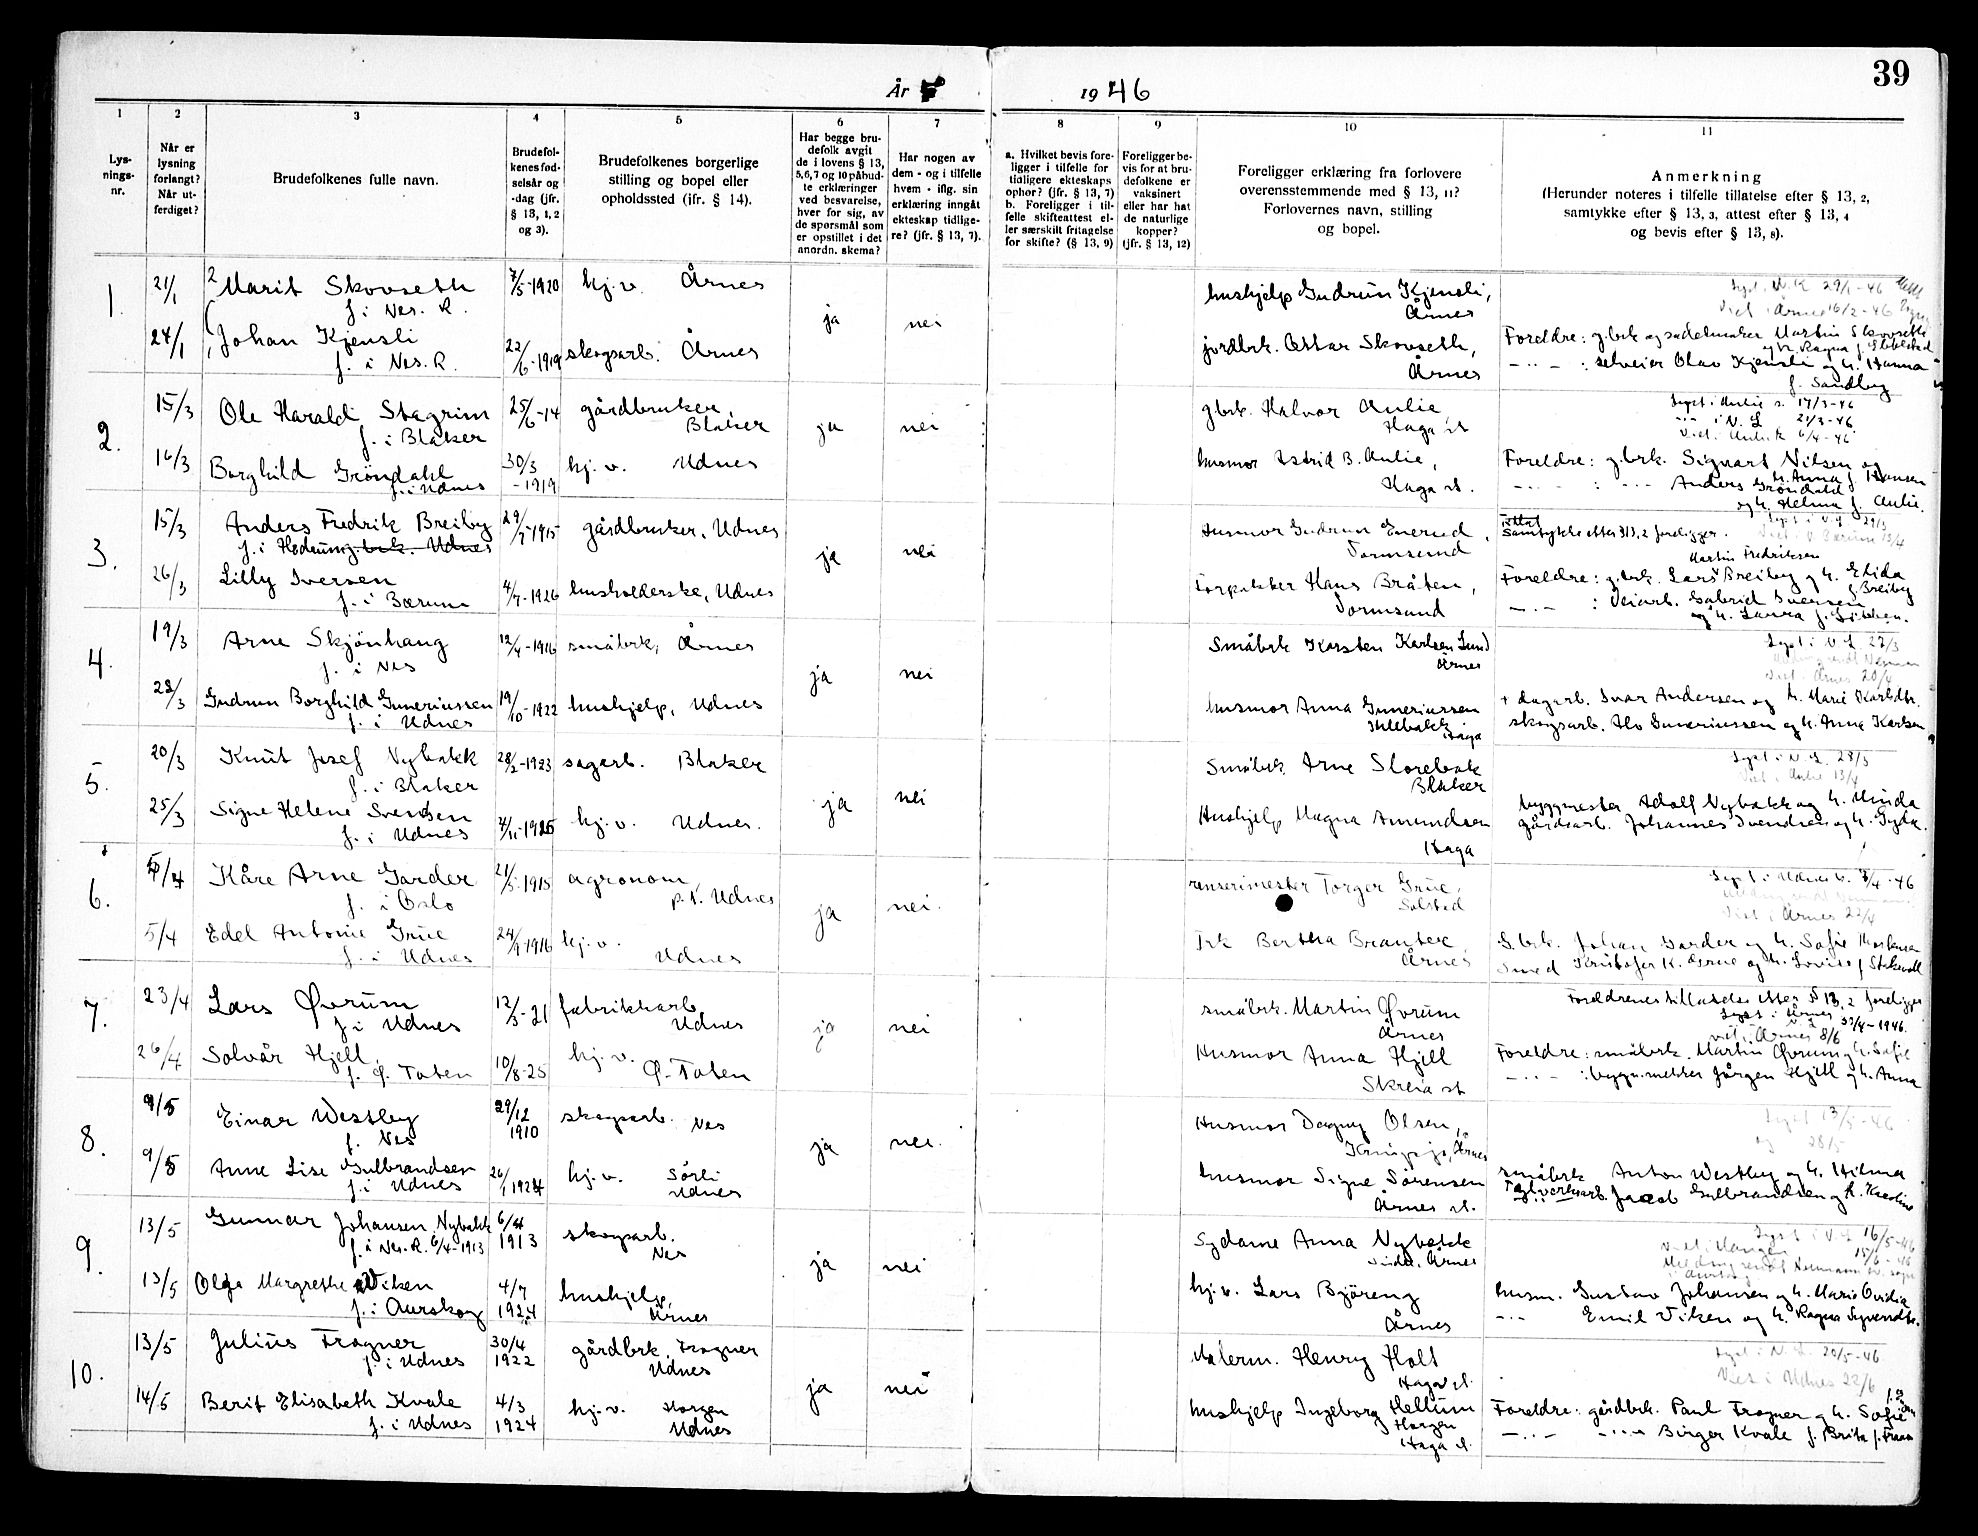 39
År 1946
1 2 3 4 5 6 7 8 9 10 11
Lys-
nings-
nr.
Når er
lysning
forlangt?
Når ut-
ferdiget?
Brudefolkenes fulle navn.
Brudefol-
kenes fød-
selsår og
-dag (jfr.
§ 13, 1, 2
og 3).
Brudefolkenes borgerlige
stilling og bopel eller
opholdssted (ifr. § 14).
Har begge bru-
defolk avgit
de i lovens § 13,
5, 6, 7 og 10 påbud-
te erklæringer
ved besvarelse,
hver for sig, av
de spørsmål som
er opstillet i det
anordn. skema?
Har nogen av
dem - og i tilfelle
hvem - iflg. sin
erklæring inngåt
ekteskap tidlige-
re? (jfr. § 13, 7).
a. Hvilket bevis fore-
ligger i tilfelle for
tidligere ekteskaps
ophør? (jfr. § 13, 7)
b. Foreligger i til-
felle skifteattest el-
ler særskilt fritagelse
for skifte? (§ 13, 9)
Foreligger be-
vis for at bru-
defolkene er
vaksinert
eller har hat
de naturlige
kopper?
(jfr. § 13, 12)
Foreligger erklæring fra forlovere
overensstemmende med § 13, 11?
Forlovernes navn, stilling
og bopel.
Anmerkning
(Herunder noteres i tilfelle tillatelse efter § 13, 2,
samtykke efter § 13, 3, attest efter § 13, 4
og bevis efter § 13, 8).
1. 21/1 Marit Skovseth 7/5-1920 hj.v. Årnes ja nei hushjelp Gudrun Kjensli, Lyst i N.K 29/1-46
f. i Nes. R. Årnes Viet i Årnes 16/2-46
24/1 Johan Kjensli 22/6-1919 skogsarb. Årnes jordbrk. Ottar Skovseth, Foreldre: g.brk og sadelmaker Martin Skovseth
f. i Nes. R. Årnes og h. Ragna f.
— " — : selveier Olav Kjensli og h. Hanna
f. Sandberg
2. 15/3 Ole Harald Stagrim 25/6-14 gårdbruker, ja nei gbrk. Halvor Aulie, Lyst i Aulie s. 17/3-46
f. i Blaker Blaker Haga st — i N. L 21/3-46
Viet i Aulie k 6/4-46
16/3 Borghild Gröndahl 30/3 -1919 hj.v. Udnes husmor Astrid B. Aulie, Foreldre: g.brk. Sigvart Nilsen og
f. i Udnes Haga st. h. Anna f. Hansen
— " — : — " — Anders Gröndahl
og h. Helma f. Aulie.
3. 15/3 Anders Fredrik Breiby 29/7-1915 gårdbruker, Udnes ja nei Husmor Gudrun Enerud, samtykke etter §13, 2 foreligger.
f. i Hodnung.brk. Udnes Vormsund Martin Fredriksen
26/3 Lilly Iversen 4/7-1926 husholderske, Udnes Torpekker Hans Bråten, Foreldre: g.brk. Lars Breiby og h. Elida
f. i Bærum Vormsund f. Breiby
— " — : Veiarb. Gabriel Iversen
og h. Laura f.
4. 19/3 Arne Skjönhaug 12/4-1916 småbrk, Årnes ja nei Småbrk Karsten Karlsen Lund Lyst i N. L. 22/3
f. i Nes Årnes Viet i Årnes 20/4
28/3 Gudrun Borghild Guneriussen 19/10-1922 hushjelp, Udnes husmor Anna Guneriussen + dagarb. Ivar Andersen og h. Marie Karlsdtr.
f. i Udnes Haga skogsarb. Alo Guneriussen og h. Anna Karlsen
5. 20/3 Knut Josef Nybakk 28/2-1923 sagarb. Blaker ja nei Småbrk. Arne Storebak Lyst i N. L. 28/3
f. i Blaker Blaker Viet i Aulie 13/4
25/3 Signe Helene Svendsen 7/11-1925 hj.v. Udnes. Hushjelp Magna Amundsen byggmester Adolf Nybakk og h. Minda
f. i Udnes Haga gårdsarb. Johannes Svendsen og h. Gyda.
6. 5/4 Kåre Arne Garder 21/5-1915 agronom, ja nei. renserimester Torger Grue, Lyst i Udnes k. 7/4-46
f. i Oslo p.t. Udnes Solstad Viet i Årnes 22/4
5/4 Edel Antonie Grue 24/9-1916 hj.v. Frk Bertha Branter G.brk. Johan Garder og h. Sofie Mortensen
f. i Udnes Udnes Årnes Smed Kristofer K. Grue og h. Lovise f.
7. 23/4 Lars Øvrum 12/3-21 fabrikkarb ja nei småbrk. Martin Øvrum Foreldrenes tillatelse etter § 13, 2 foreligger
f. i Udnes Udnes Årnes Lyst i Årnes 30/4-1946.
viet i Årnes 8/6
26/4 Solvår Hjell, 10/8-25 hj.v. Husmor Anna Hjell Foreldre: småbrk. Martin Øvrum og h. Sofie
f. Ø. Toten Ø. Toten Skreia st — " — : byggn.mekker Jörgen Hjell og h. Anna
8. 9/5 Einar Westby 29/12 1910 skogsarb. Nes ja nei. Husmor Dagny Olsen, Lyst 13/5-46
f. Nes Årnes og 28/5
9/5 Anne Lise Gulbrandsen 26/1 1924 hj.v. Sörli husmor Signe Sörensen småbrk Anton Westby og h. Hilma
f. i Udnes Udnes Årnes st. Teglverksarb. Jacob Gulbrandsen og h. Karoline
9. 13/5 Gunnar Johansen Nybakk 6/4 1913 skogsarb. ja nei Sydame Anna Nybakk Lyst i N. L 16/5-46
f. i Nes. R. 6/4-1913 Nes Årnes Viet i Mangen 15/6-46
13/5 Olga Margrethe Viken 4/7 1924 hushjelp, hj.v. Lars Björeng husm. Gustav Johansen og h. Marie Ovidia
f. i Aurskog Årnes Årnes — " — Emil Viken og h. Ragna Syversdtr.
10. 13/5 Julius Frogner 30/4 1922 gårdbrk. Frogner ja nei Malerm. Henry Holt Lyst i N. L. 20/5-46
f. i Udnes Udnes Haga st. Viet i Udnes 22/6
14/5 Berit Elisabeth Kvale 4/3 1924 hj.v. Horgen hushjelp Ingeborg Hellum Foreldre: gårdbrk. Paul Frogner og h. Sofie
f. i Udnes Udnes Horgen Haga st. — " — — " — Birger Kvale f. Brita f.